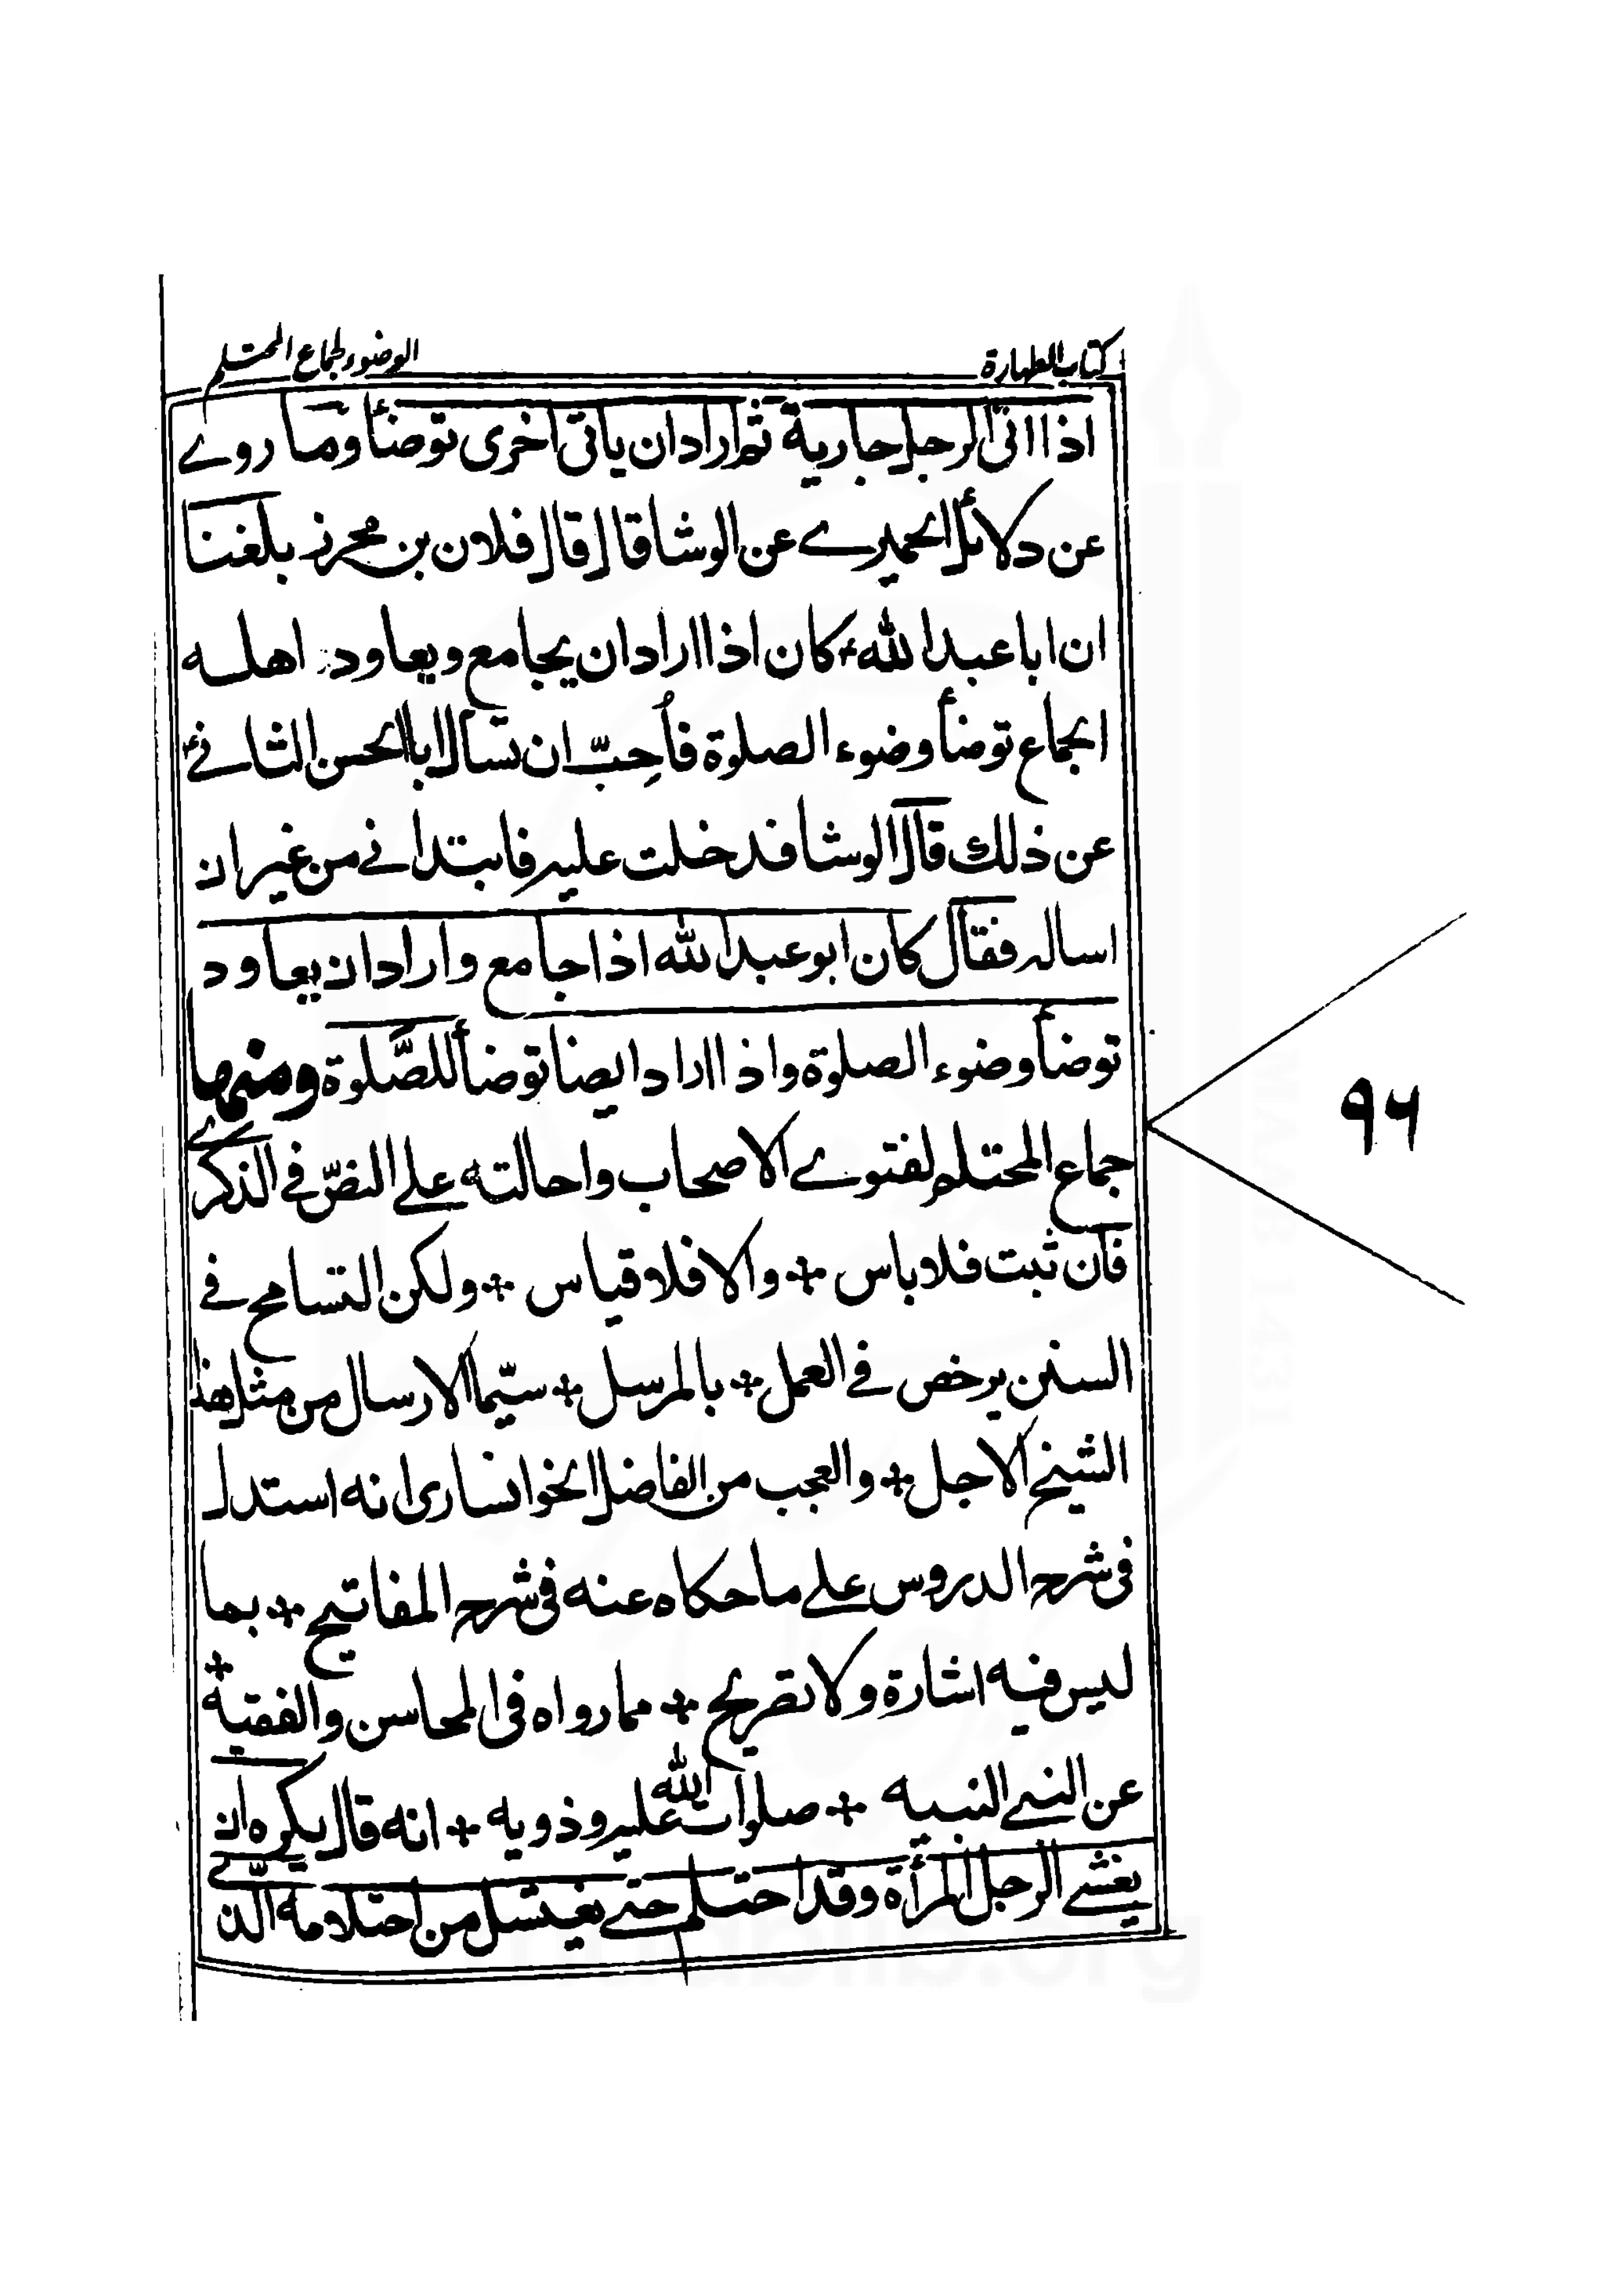 كتاب الطهارة
الوضوء لجماع المحتلم
اذا اتى الرجل جارية ثم اراد ان ياتى اخرى توضأ وما روے
عن دلائل الحميرے عن الوشا قال قال فلان بن محرز بلغنا
ان ابا عبد الله ع كان اذا اراد ان يجامع ويعاود اهله
الجماع توضأ وضوء الصلوة فأحبّ ان تسأل ابا الحسن الثانے ع
عن ذلك قال الوشا فدخلت عليه فابتدانے من غير ان
اساله فقال كان ابو عبد الله اذا جامع واراد ان يعاود
توضأ وضوء الصلوة واذا اراد ايضا توضأ للصّلوة ومنها
جماع المحتلم لفتوے الاصحاب واحالته علے النصّ فے الذكرے
فان ثبت فلا باس + والا فلا قياس + ولكن التسامح فے
السنن يرخص فے العمل + بالمرسل + سيّما الارسال من مثل هذا
الشيخ الاجل + والعجب من الفاضل الخوانسارى انه استدل
فى شرح الدروس علے ما حكاه عنه فى شرح المفاتيح + بما
ليس فيه اشارة ولا تصريح + مما رواه فى المحاسن والفقيه +
عن النبے النبيه + صلوات الله عليه وذويه + انه قال يكره ان
يغشے الرجل المرأة وقد احتلم حتے يغتسل من احتلامه الّذے
٩٦